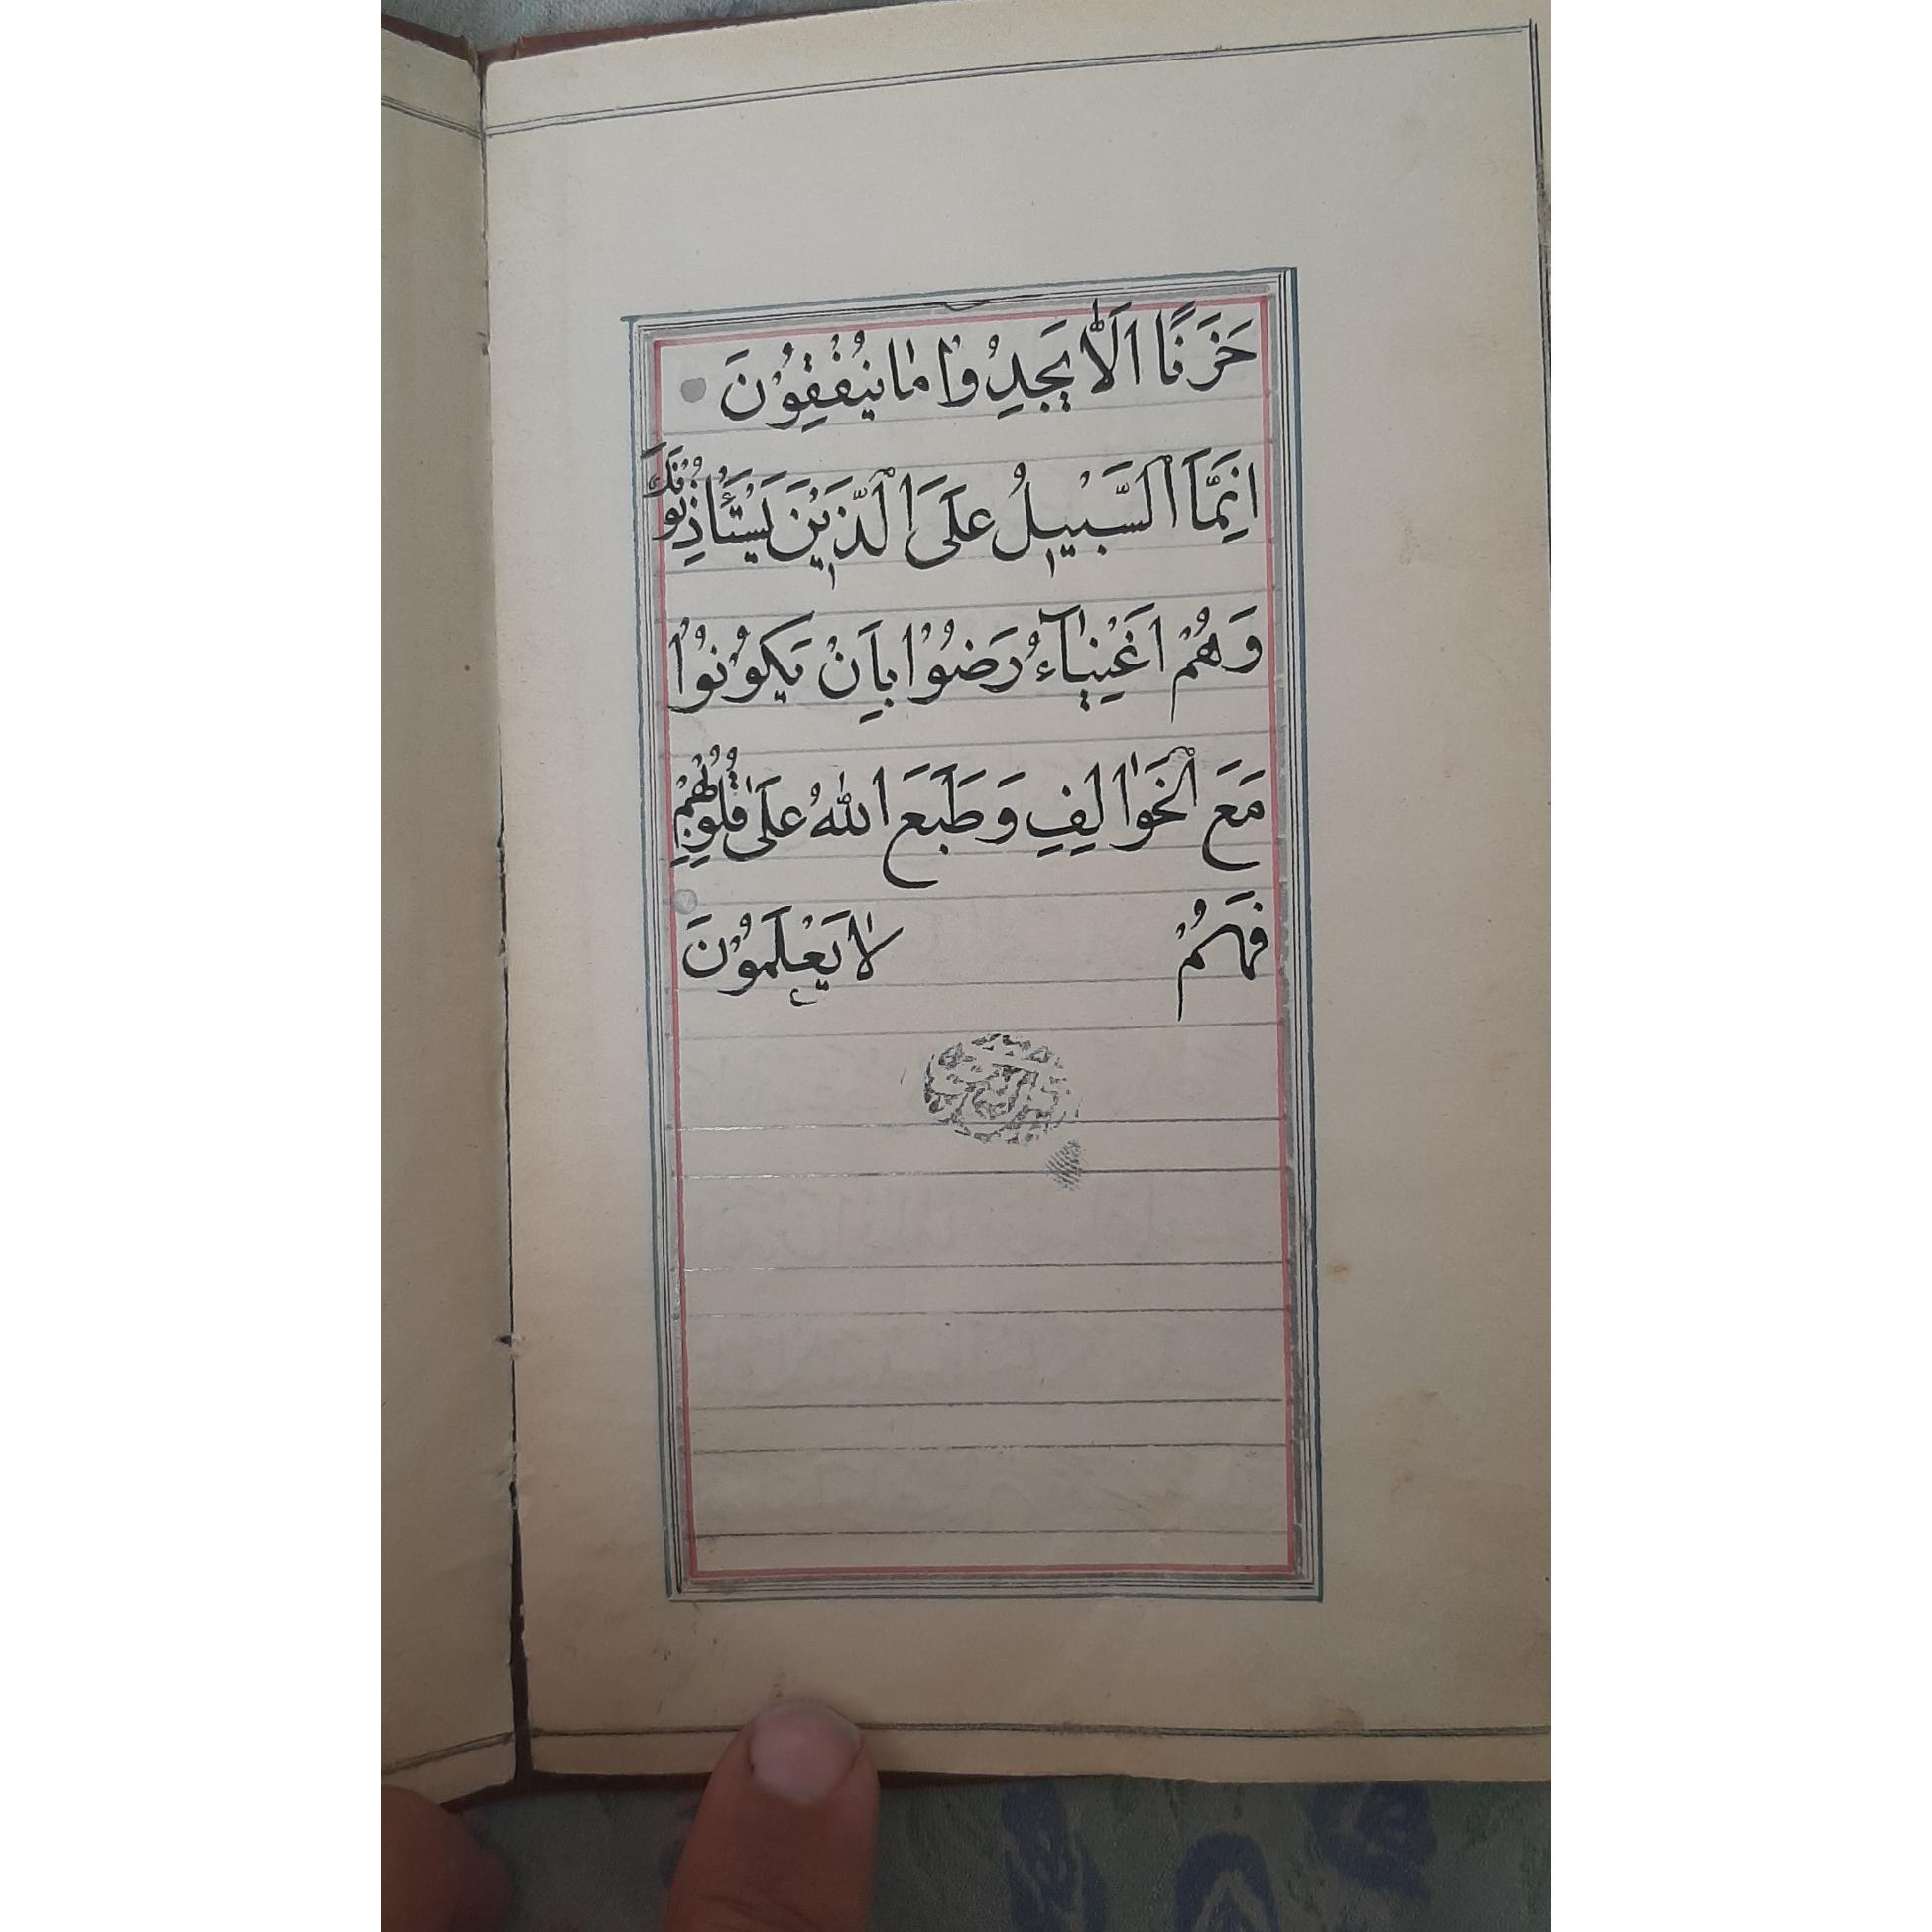 حَزَنًا اَلّٰا يَجِدُوا مٰا يُنْفِقُونَ
اِنَّمَا السَّبيٖلُ عَلَى الَّذيٖنَ يَسْتَأْذِنُونَكَ
وَهُمْ اَغْنِيٰآءُ رَضُوْا بِاَنْ يَكُونُوْا
مَعَ الْخَوٰالِفِ وَطَبَعَ اللّٰهُ عَلٰى قُلُوبِهِمْ
فَهُمْ لٰا يَعْلَمُوْنَ